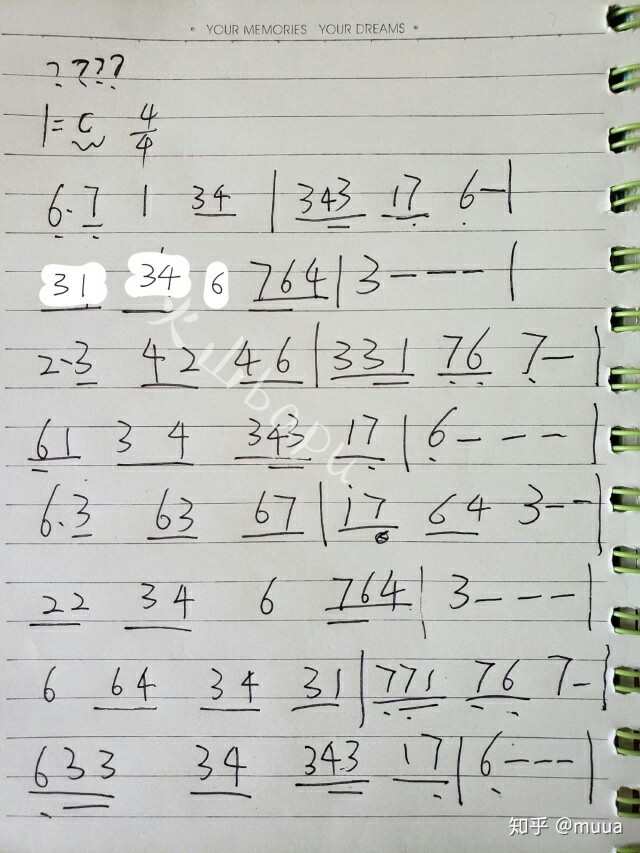 • YOUR MEMORIES YOUR DREAMS •
????
1=C 4/4
6·7 1 34 | 343 17 6— |
31 34 6 764 | 3 — — — |
2·3 42 46 | 331 76 7— |
61 34 343 17 | 6 — — — |
6·3 63 67 | 17 64 3 — — |
22 34 6 764 | 3 — — — |
6 64 34 31 | 771 76 7— |
633 34 343 17 | 6 — — — |
知乎 @muua